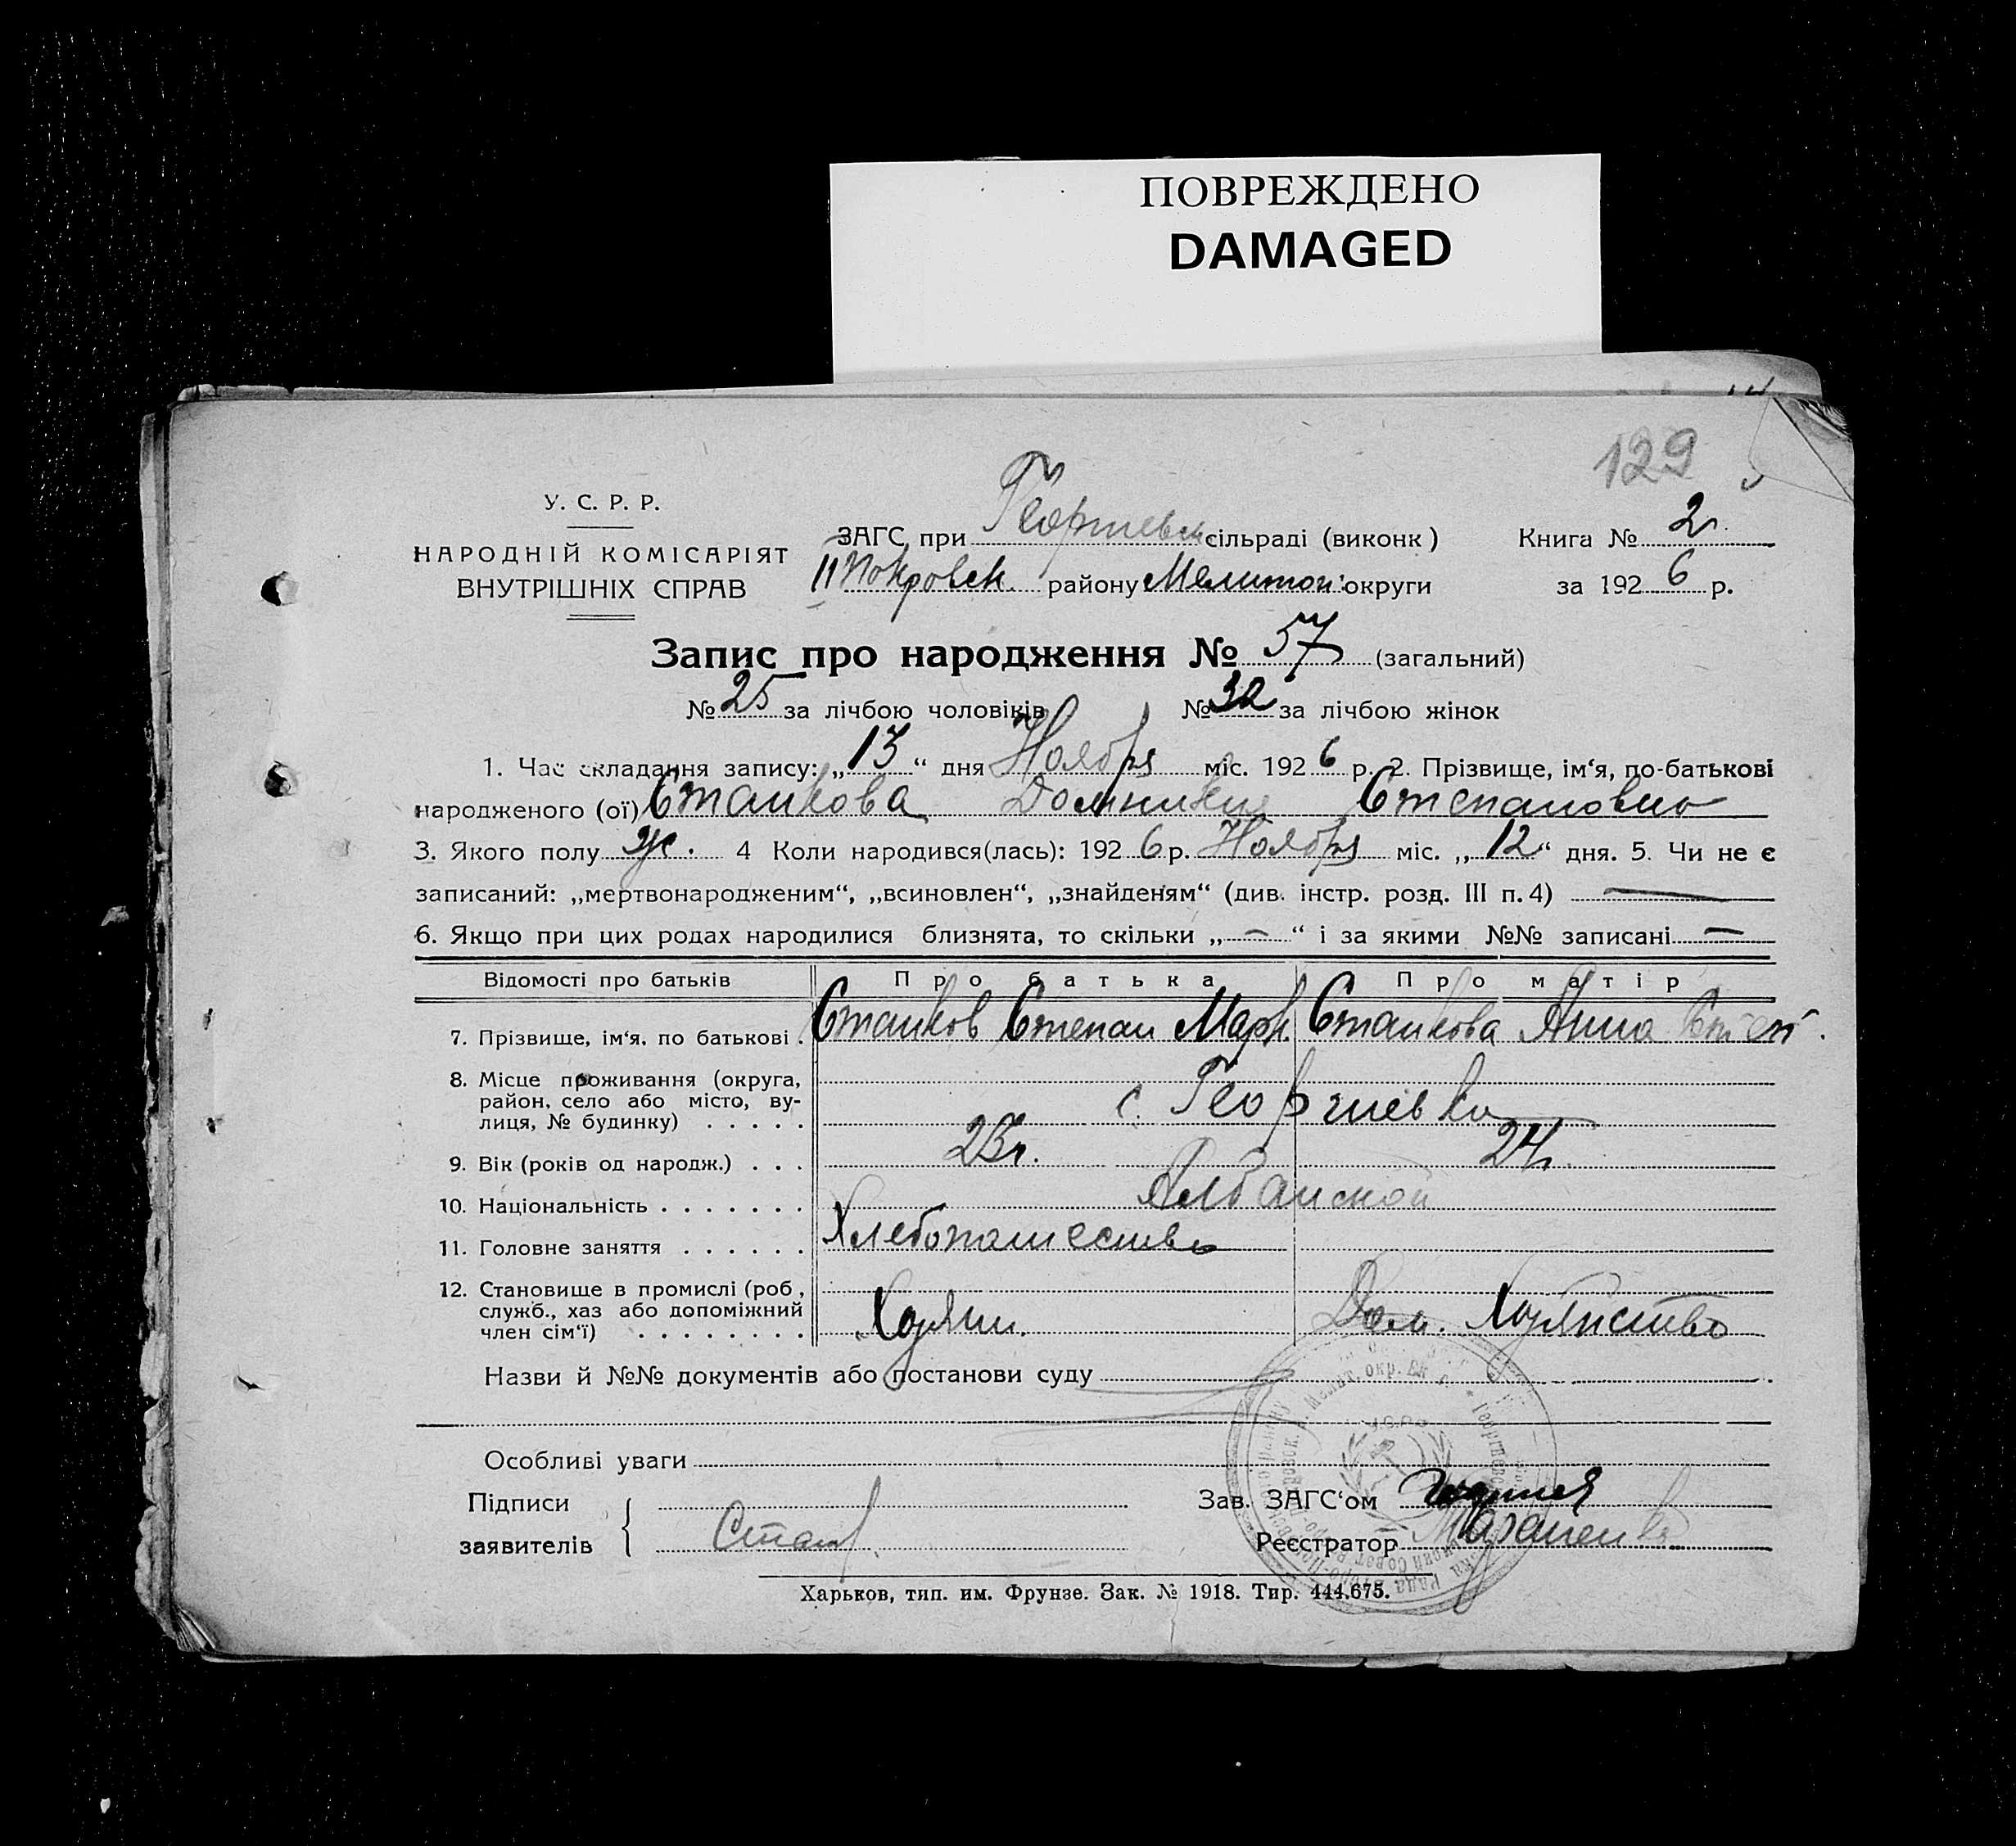 ПОВРЕЖДЕНО
DAMAGED
129
У. С. Р. Р.
НАРОДНІЙ КОМІСАРІЯТ
ВНУТРІШНІХ СПРАВ
ЗАГС при Георгиевск сільраді (виконк)
II Покровск. району Мелитоп. округи
Книга № 2
за 1926 р.
Запис про народження № 57 (загальний)
№ 25 за лічбою чоловіків № 32 за лічбою жінок
1. Час складання запису: „13“ дня Ноября міс. 1926 р. 2. Прізвище, ім'я, по-батькові
народженого (ої) Станкова Домникия Степановна
3. Якого полу ж. 4 Коли народився(лась): 1926 р. Ноября міс. „12“ дня. 5. Чи не є
записаний: „мертвонародженим“, „всиновлен“, „знайденям“ (див. інстр. розд. III п. 4) —
6. Якщо при цих родах народилися близнята, то скільки „—“ і за якими №№ записані —
Відомості про батьків Про батька Про матір
7. Прізвище, ім'я, по батькові . Станков Степан Марк. Станкова Анна
8. Місце проживання (округа,
район, село або місто, ву-
лиця, № будинку) . . . . . с. Георгиевка
9. Вік (років од народж.) . . . 23 г. 24 г.
10. Національність . . . . . . . Албанской
11. Головне заняття . . . . . . Хлебопашество
12. Становище в промислі (роб,
служб., хаз або допоміжний
член сім'ї) . . . . . . . . Хозяин. Дом. Хозяйство
Назви й №№ документів або постанови суду
Особливі уваги
Підписи
заявителів Станк
Зав. ЗАГС'ом
Реєстратор
Харьков, тип. им. Фрунзе. Зак. № 1918. Тир. 444.675.